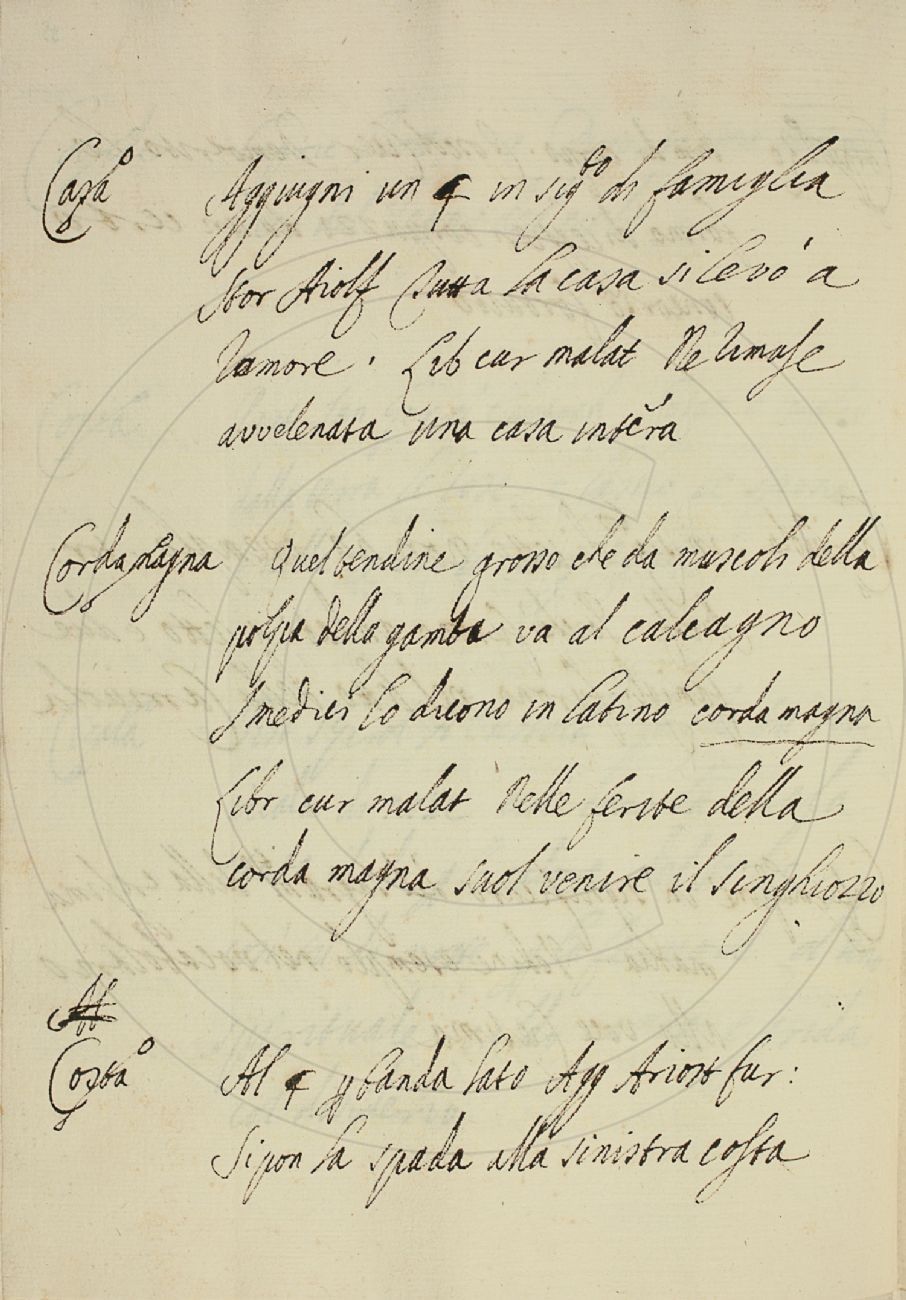 Casa° Aggiugni un ¶ in sig.to di famiglia
Stor Aiolf Tutta la casa si levò a
romore. Lib cur malat Ne rimase
avvelenata una casa intera
Corda magna Quel tendine grosso che da muscoli della
polpa della gamba va al calcagno
I medici lo dicono in latino corda magna
Libr cur malat Nelle ferite della
corda magna suol venire il singhiozzo
Costa° Al ¶ p banda lato Agg Ariost fur:
Si pon la spada alla sinistra costa